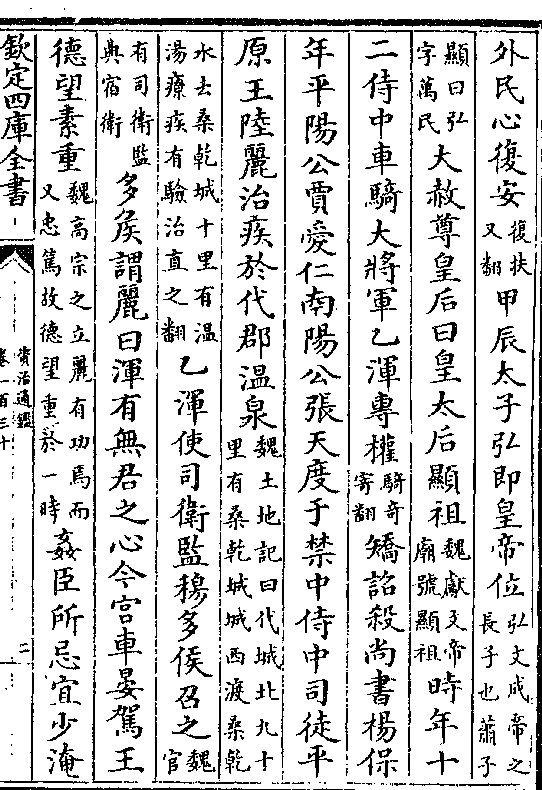 外民心復安復扶又翻甲辰太子弘即皇帝位弘文成帝之長子也蕭子
顯曰弘字萬民大赦尊皇后曰皇太后顯祖魏獻文帝廟號顯祖時年十
二侍中車騎大將軍乙渾專權騎奇寄翻矯詔殺尚書楊保
年平陽公賈愛仁南陽公張天度于禁中侍中司徒平
原王陸麗治疾於代郡温泉魏土地記曰代城北九十里有桑乾城城西渡桑乾
水去桑乾城十里有温湯療疾有驗治直之翻乙渾使司衛監穆多侯召之魏官
有司衛監典宿衛多侯謂麗曰渾有無君之心今宫車晏駕王
德望素重魏高宗之立麗有功焉而又忠篤故德望重於一時姦臣所忌宜少淹
欽定四庫全書
資治通鑑
卷一百三十
二